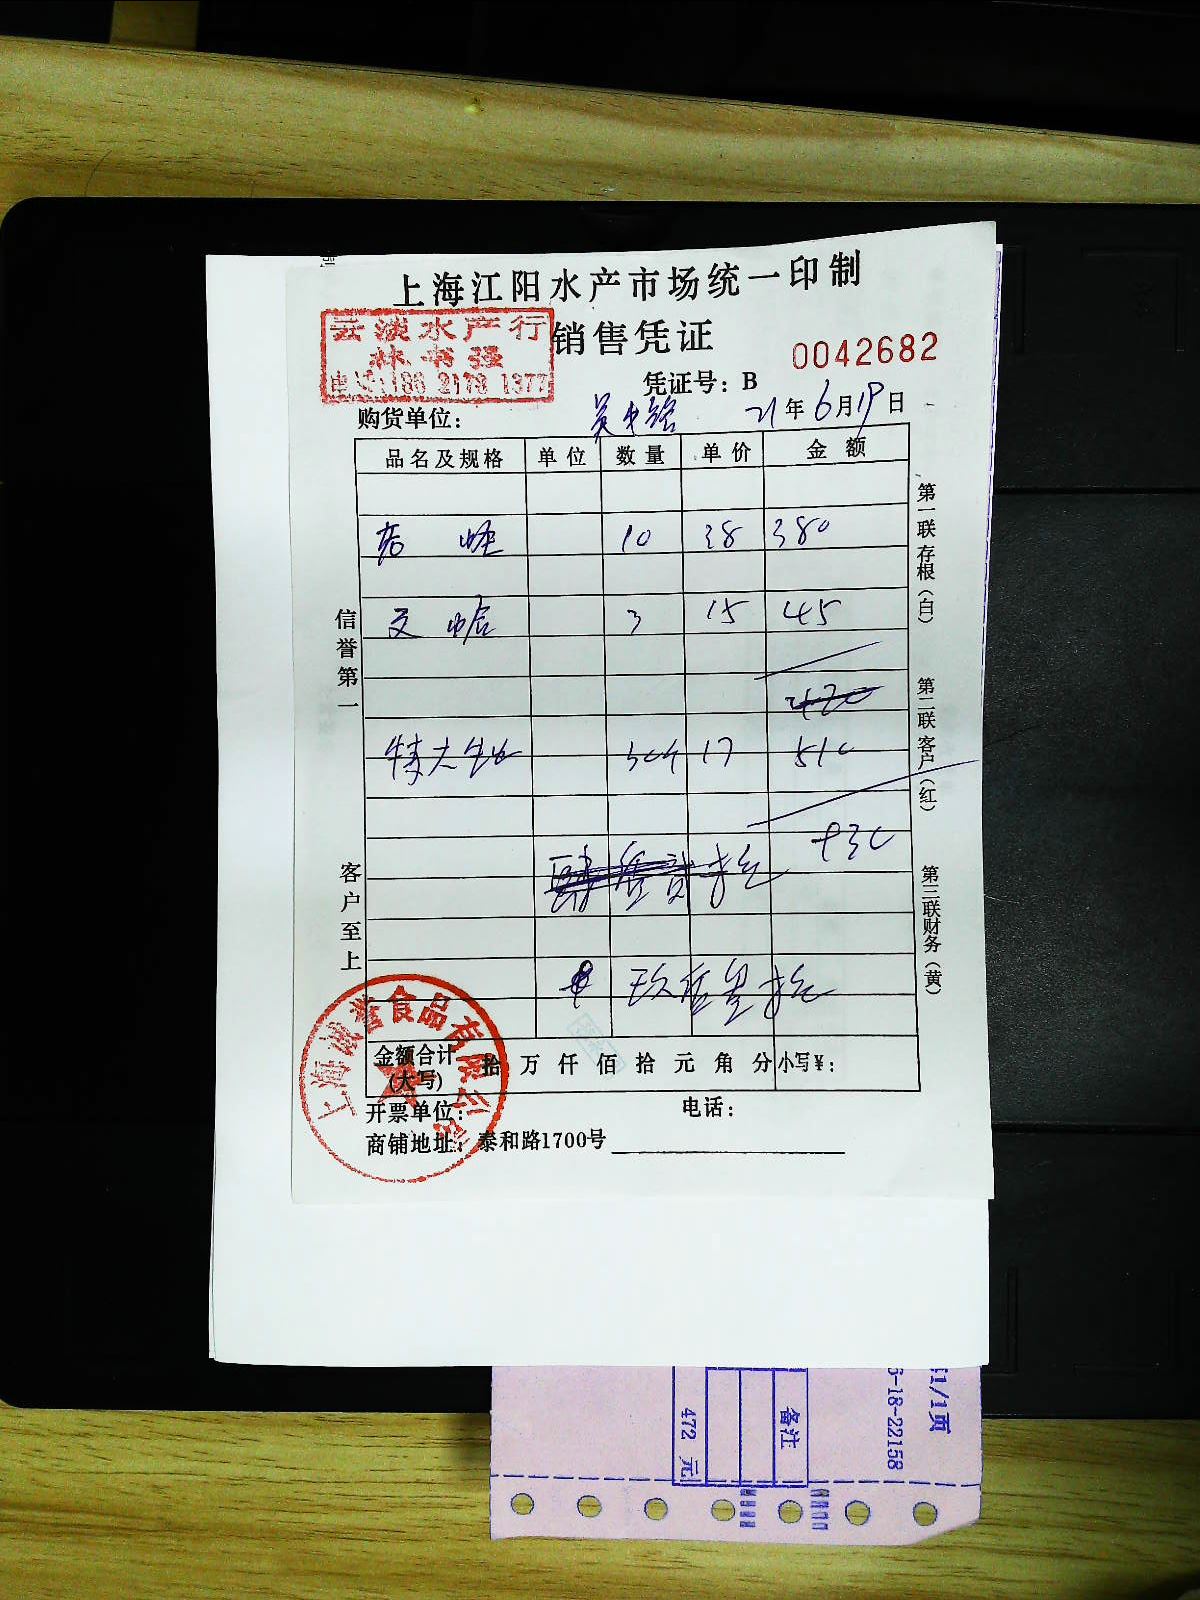 上海江阳水产市场统一印制
云淡水产行
林书强
电话:186 2178 1377
销售凭证
0042682
凭证号：B
购货单位： 吴中路 21年6月19日
品名及规格 单位 数量 单价 金额
10 38 380
文蛤 3 15 45
420
特大生蚝 30个 17 510
930
肆佰贰拾元
玖佰叁拾元
金额合计(大写) 拾 万 仟 佰 拾 元 角 分 小写￥：
开票单位： 电话：
商铺地址：泰和路1700号
信誉第一
客户至上
第一联存根（白）
第二联客户（红）
第三联财务（黄）
上海诚誉食品有限公司
第1/1页
6-18-22158
备注
472 元